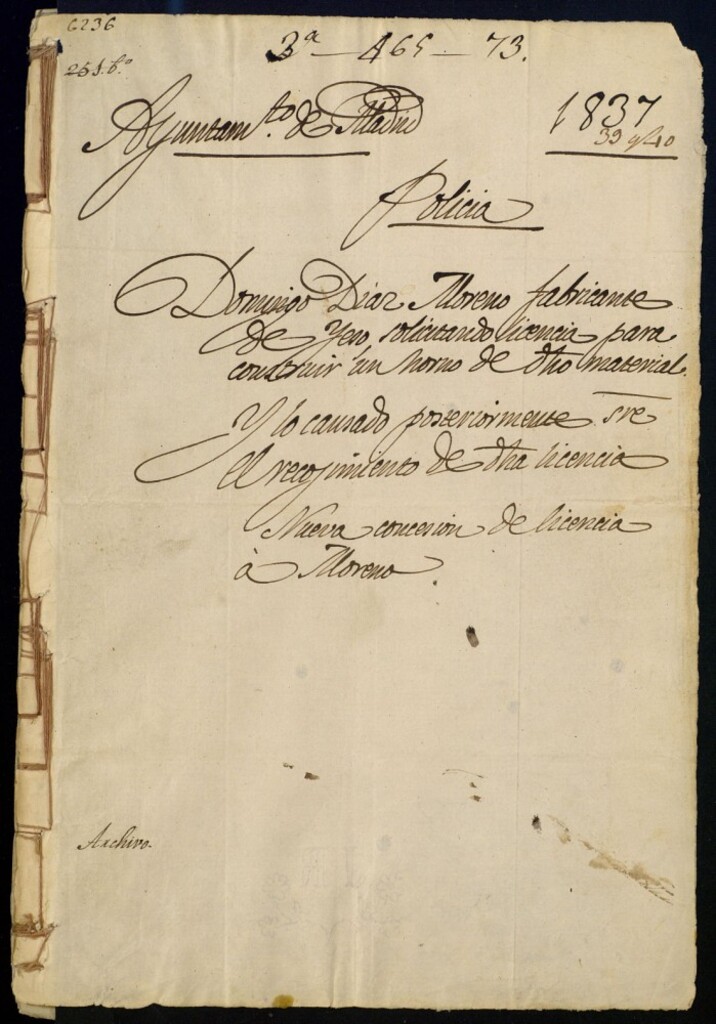 6236
3ª - 465 - 73.
Ayuntamto. de Madrid
1837
39 y 40
Policia
Domingo Diaz Moreno fabricante
de Yeso solicitando licencia para
construir un horno de dho material.
Y lo causado posteriormente sre
el recojimiento de dha licencia
Nueva concesion de licencia
à Moreno.
Archivo.